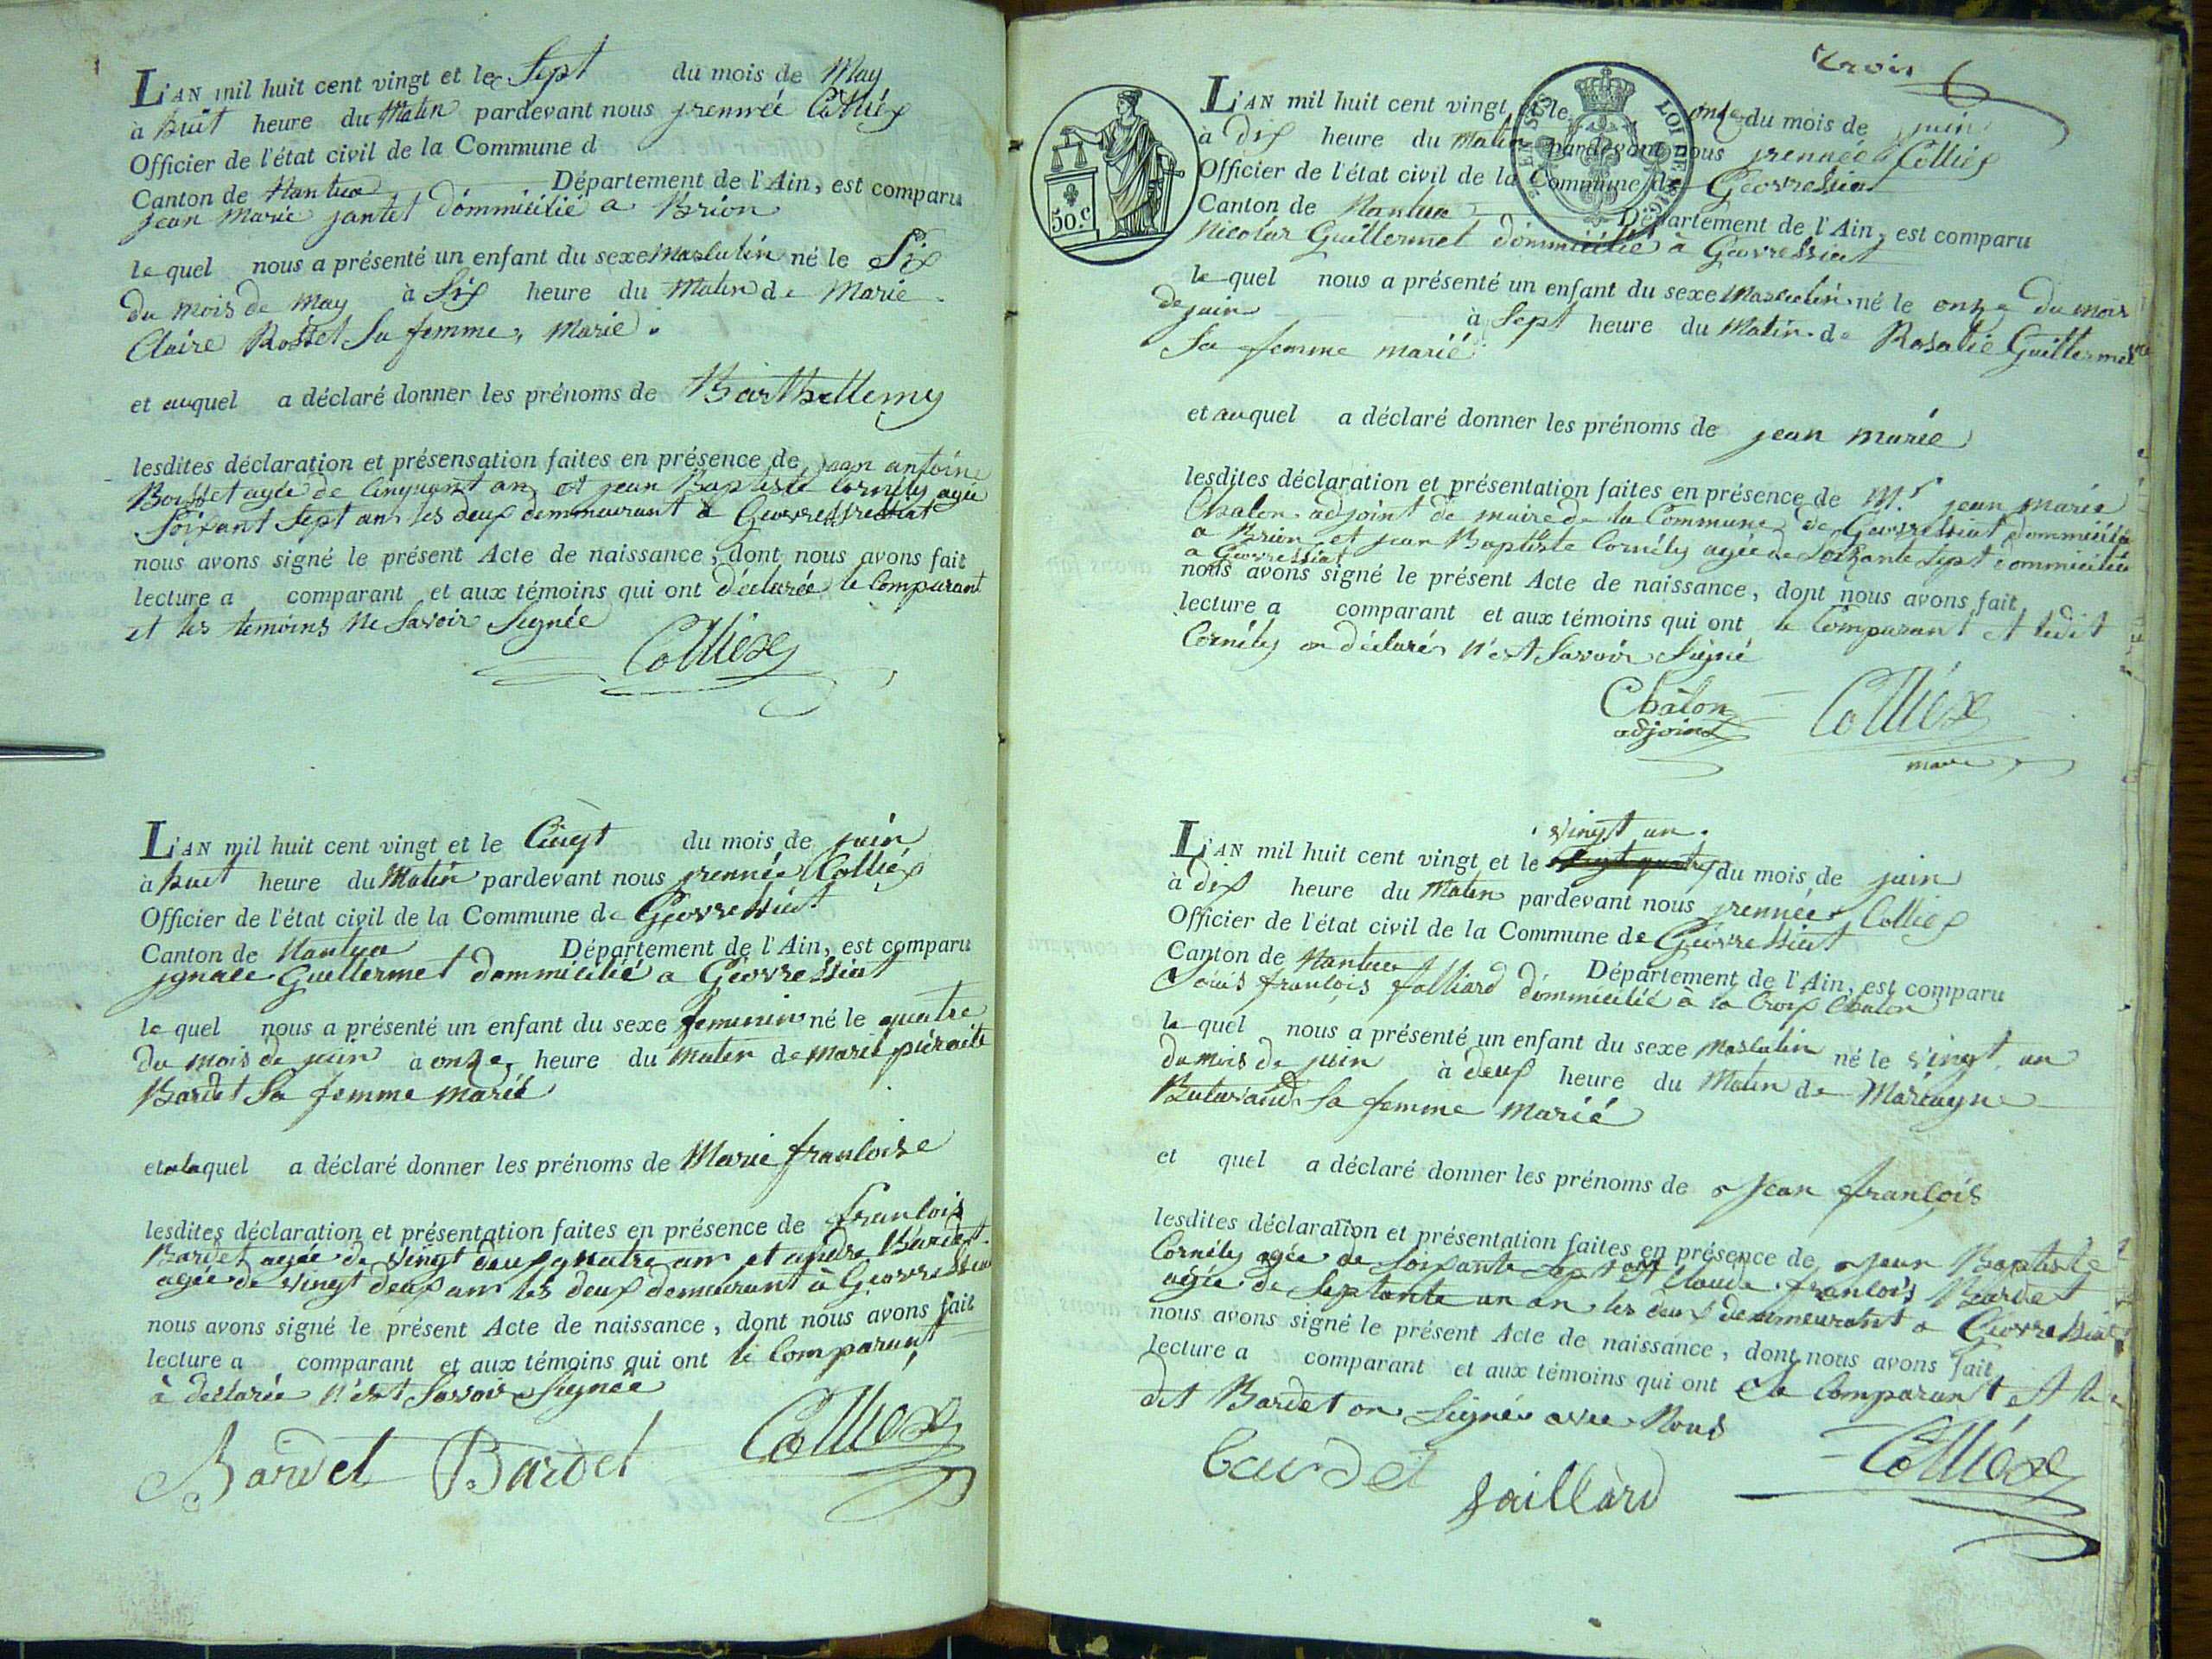 L'AN mil huit cent vingt et le Sept du mois de May
à huit heure du Matin pardevant nous jrennée Colliex
Officier de l'état civil de la Commune d
Canton de Nantua Département de l'Ain, est comparu
jean Marie jantet dommicilié a Brion
le quel nous a présenté un enfant du sexe Masculin né le Six
du mois de May à Six heure du Matin de Marie
Claire Rosset Sa femme, Marie.
et auquel a déclaré donner les prénoms de Barthellemy
lesdites déclaration et présensation faites en présence de jean antoine
Bosset agée de Cinquant an et jean Baptiste Cornély agée
Soixant Sept ans les deux demmeurant a
nous avons signé le présent Acte de naissance, dont nous avons fait
lecture a comparant et aux témoins qui ont déclarée le Comparant
et les témoins Ne Savoir Signée
Colliex
L'AN mil huit cent vingt et le Cinqt du mois de juin
à huit heure du Matin pardevant nous jrennée Colliex
Officier de l'état civil de la Commune de Geovressiat
Canton de Nantua Département de l'Ain, est comparu
jgnace Guillermet dommicilié a Geovressiat
le quel nous a présenté un enfant du sexe feminin né le quatre
du mois de juin à onze heure du matin de marie
Bardet Sa femme marié
et a laquel a déclaré donner les prénoms de Marie francoise
lesdites déclaration et présentation faites en présence de francois
Bardet agée de vingt deux quatre an et andre Bardet
agée de vingt deux an les deux demeurant à Geovressiat
nous avons signé le présent Acte de naissance, dont nous avons fait
lecture a comparant et aux témoins qui ont le Comparant
à declarée n'est Savoir Signée
Bardet Bardet Colliex
trois
L'AN mil huit cent vingt et le onze du mois de juin
à dix heure du Matin pardevant nous jrennée Colliex
Officier de l'état civil de la Commune de Geovressiat
Canton de Nantua Département de l'Ain, est comparu
50.c
nicolas Guillermet dommicilié à Geovressiat
le quel nous a présenté un enfant du sexe Masculin né le onze du mois
de juin à Sept heure du Matin de Rosalie Guillermet
Sa femme marié
et auquel a déclaré donner les prénoms de jean marie
lesdites déclaration et présentation faites en présence de Mr jean marie
Chalon adjoint de maire de la Commune de Geovressiat dommicilié
a Brion et jean Baptiste Cornély agée de Soixante Sept dommicilié
a Geovressiat
nous avons signé le présent Acte de naissance, dont nous avons fait
lecture a comparant et aux témoins qui ont le Comparant et ledit
Cornély on déclarés n'est Savoir Signé
Chalon Colliex
adjoint maire
vingt un.
L'AN mil huit cent vingt et le vingt quatre du mois de juin
à dix heure du Matin pardevant nous jrennée Colliex
Officier de l'état civil de la Commune de Geovressiat
Canton de Nantua Département de l'Ain, est comparu
Louis francois jalliard dommicilié à la Croix Chalon
le quel nous a présenté un enfant du sexe Masculin né le vingt un
du mois de juin à deux heure du Matin de Mariagne
Buturaud Sa femme marié
et quel a déclaré donner les prénoms de jean françois
lesdites déclaration et présentation faites en présence de jean Baptiste
Cornély agée de Soixante Sept et Claude francois Bardet
agée de Septante un an les deux demmeurant a Geovressiat
nous avons signé le présent Acte de naissance, dont nous avons fait
lecture a comparant et aux témoins qui ont Le Comparant et le
dit Bardet on Signé avec Nous
bardet jaillard Colliex